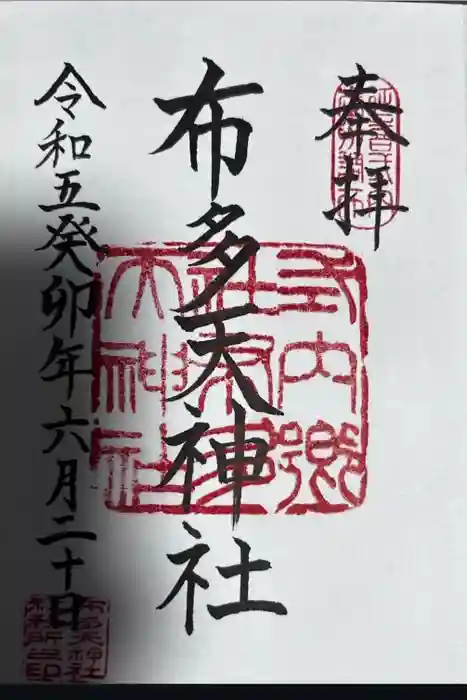 奉拝
布多天神社
令和五癸卯年六月二十日
式内郷
社布多
天神社
布多天神社
社務所之印